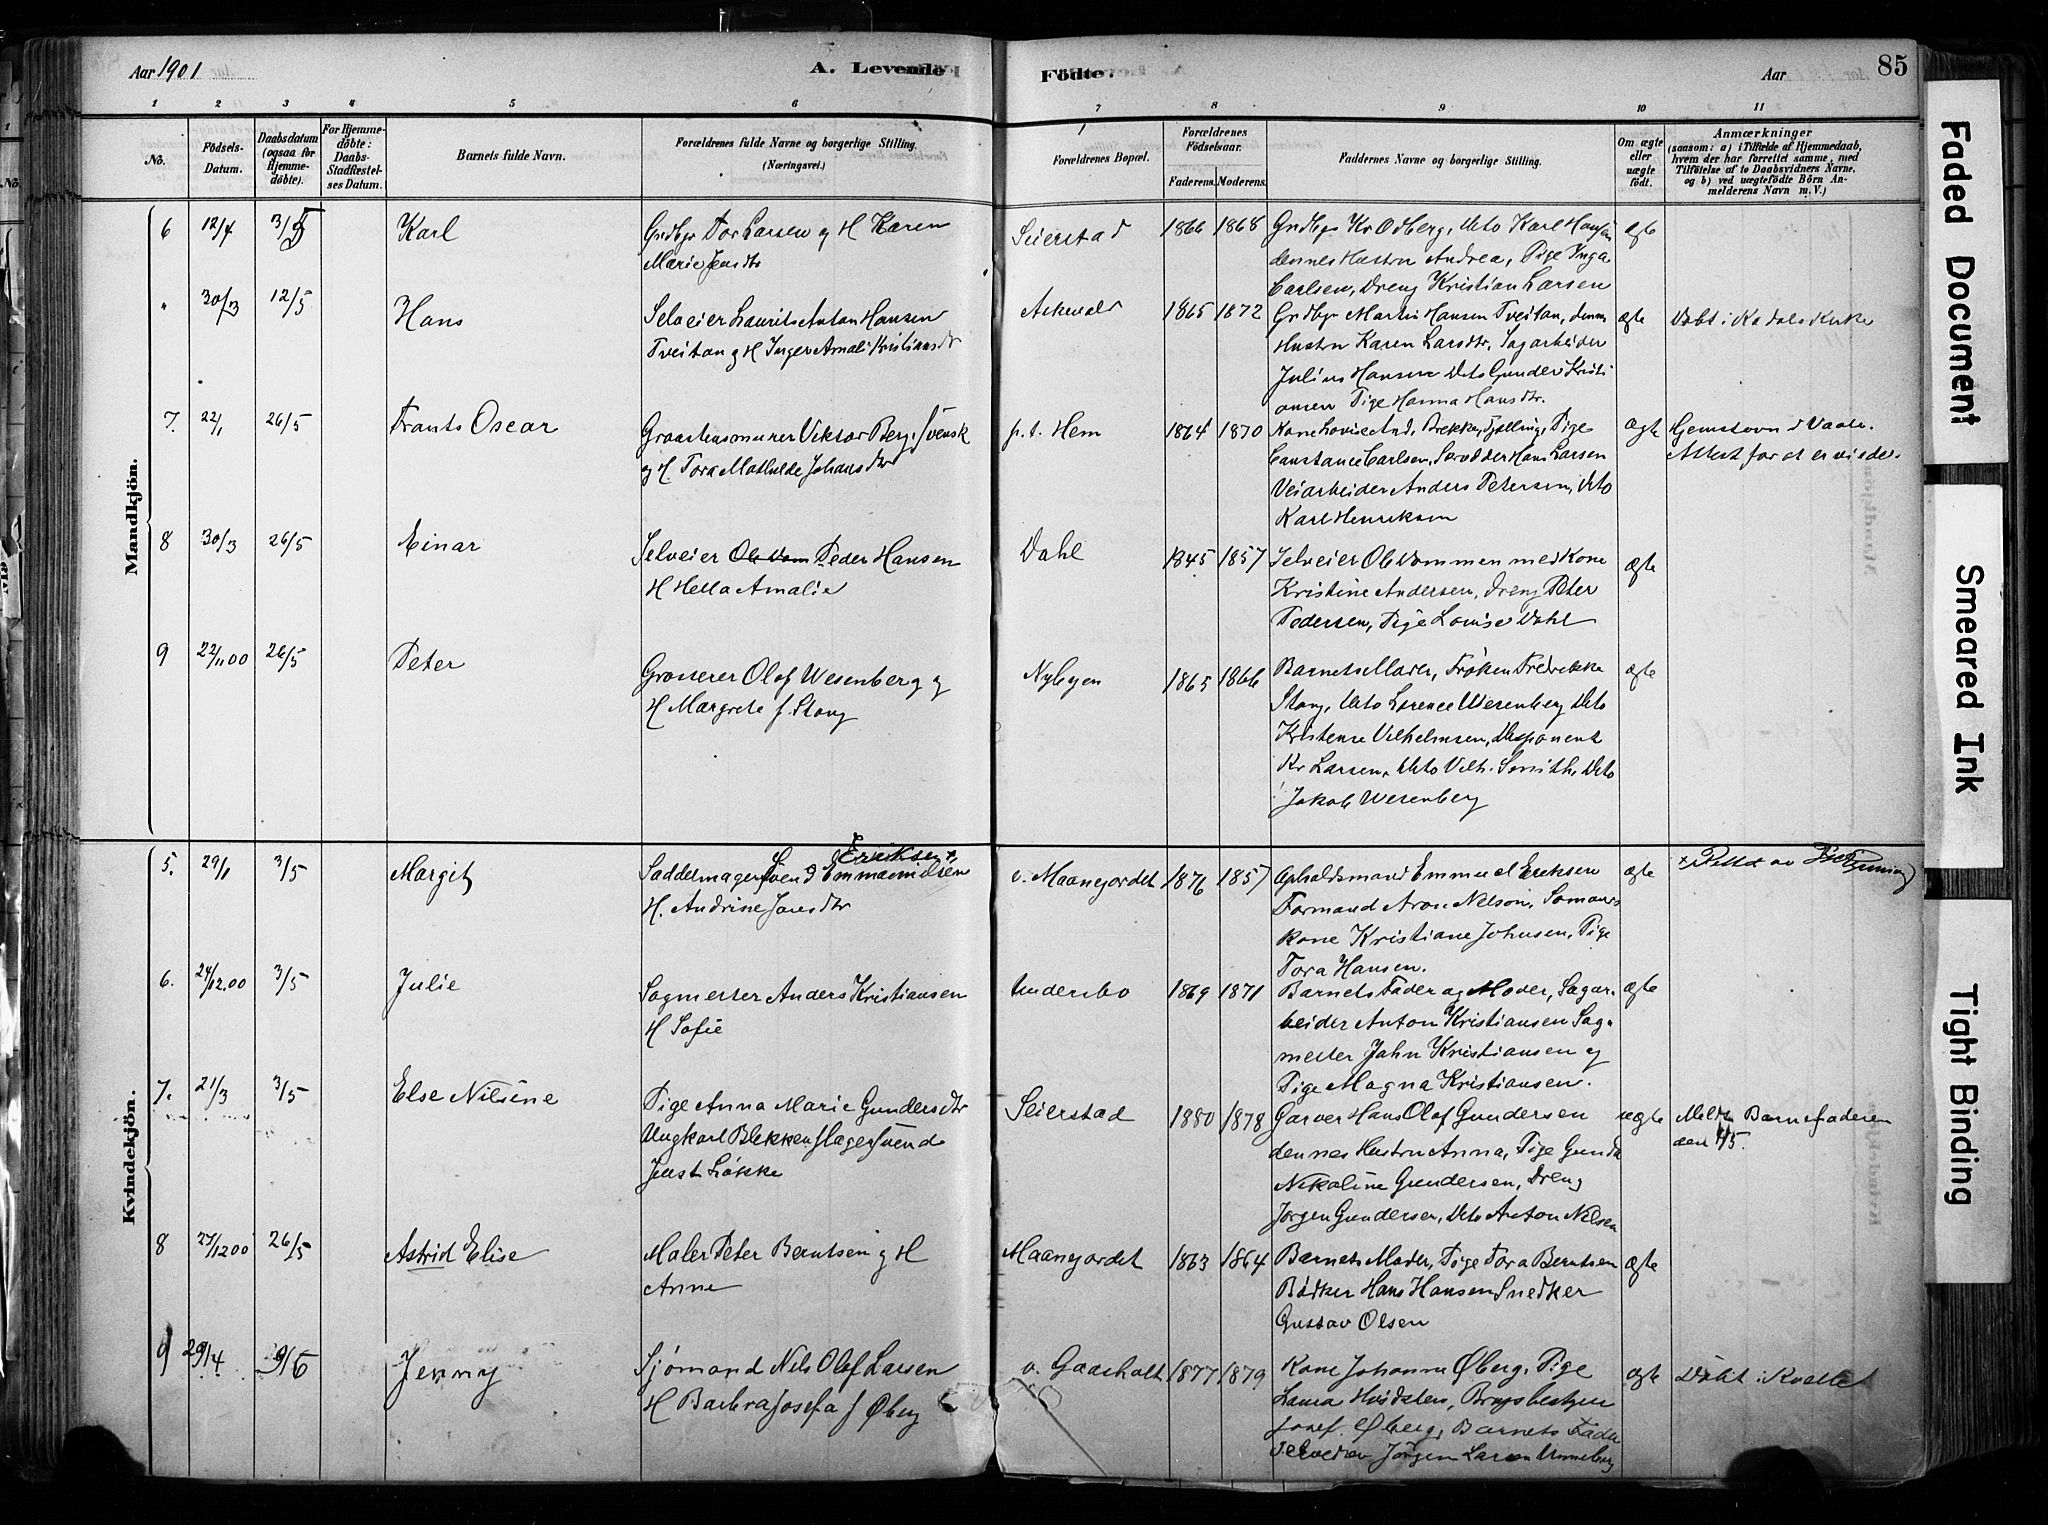 Aar 1901
A. Levende
Fødte.
Aar
85
1 2 3 4 5 6 7 8 9 10 11
No.
Fødsels-Datum.
Daabsdatum (ogsaa for Hjemme-døbte).
For Hjemme-døbte: Daabs-Stadfæstel-ses Datum.
Barnets fulde Navn.
Forældrenes fulde Navne og borgerlige Stilling. (Næringsvei.)
Forældrenes Bopæl.
Forældrenes Fødselsaar.
Faderens. Moderens.
Faddernes Navne og borgerlige Stilling.
Om ægte eller uægte født.
Anmærkninger (saasom: a) i Tilfælde af Hjemmedaab, hvem der har forrettet samme, med Tilføielse af to Daabsvidners Navne, og b) ved uægtefødte Børn An-melderens Navn m. V.)
Mandkjön.
6 12/4 3/5 Karl
Grdbgr Tor Larsen og H Karen
Marie Jensdtr
Seierstad 1866 1868
Grdbgr Kr Odberg, dito Karl Hansen
dennes Hustru Andrea, Pige Inga
Carlsen, Dreng Kristian Larsen
ægte
" 30/3 12/5 Hans
Selveier Laurits Anton Hansen
Tveitan g H Inger Amali Kristiansdtr
1865 1872
Grdbgr Martin Hansen Tveitan, dennes
Hustru Karen Larsdtr, Sagarbeider
Julius Hansen Dito Gunder Kristi
ansen Pige Hanna Hansdtr.
ægte
Døbt i Kodals Kirke
7. 22/1 26/5 Frants Oscar
Graastensmurer Viktor Berg, svensk
og H. Tora Mathilde Johansdtr
p.t. Hem 1864 1870
Kone Lovise And. Brekke, Tjølling, Pige
Constance Carlsen, Hans Larsen
Veiarbeider Anders Petersen, dito
Karl Henriksen
Ægte
Attest for at er viede.
8 30/3 26/5 Einar
Selveier Peder Hansen
H Hella Amalie
Dahl 1845 1857
Selveier Ole Vommen med Kone
Kristine Andersen, Dreng Peter
Pedersen, Pige Louise Dahl
ægte
9 22/11 00 26/5 Peter
Grosserer Olaf Wesenberg g
H Margrete f. Stang
Nybyen 1865 1866
Barnets Moder, Frøken Fredrikke
Stang, dito Lorence Wesenberg dito
Kristense Vilhelmsen, Disponent
Kr Larsen, dito Vilh. Smith, dito
Jakob Wesenberg
ægte
Kvindekjön.
5. 29/1 3/5 Margit
Eriksen +
Saddelmager Svend Emmanuelsen
H. Andrine Jonsdtr
v. Maanejordet 1876 1857
Opholdsmand Emmuel Eriksen
Formand Aron Nelson, Sømands
kone Kristiane Johnsen, Pige
Tora Hansen.
ægte
+ Rettet av
6. 24/12.00 3/5 Julie
Sagmester Anders Kristiansen
H Sofie
Undersbo 1869 1871
Barnets Fader og Moder, Sagar-
beider Anton Kristiansen Sag-
mester John Kristiansen og
Pige Magna Kristiansen.
ægte
7. 21/3 3/5 Else Nilsine
Pige Anna Marie Gundersdtr
Ungkarl Blikkenslagersvend
Just Løkke
Seierstad 1880 1878
Garver Hans Olaf Gundersen
dennes Hustru Anna, Pige Gunda
Nikoline Gundersen, Dreng
Jørgen Gundersen, Dito Anton Nilsen
uægte
Meldt Barnefaderen
den 4/5.
8 27/12 00 26/5 Astrid Elise
Maler Peter Berntsen g H
Anne
Maanejordet 1863 1864
Barnets Moder, Pige Tora Berntsen
Bødker Hans Hansen Snedker
Gustav Olsen
ægte
9 29/4 9/6 Jenny
Sjømand Nils Olaf Larsen
H Barbra Josefa f Øberg
v. Gaasholt 1877 1879
Kone Johanne Øberg, Pige
Laura Hvidsten, Brugsbestyrer
Josef Øberg, Barnets Fader
Selveier Jørgen Larsen Unneberg
ægte
Døbt i Kvelle
Faded Document
Smeared Ink
Tight Binding